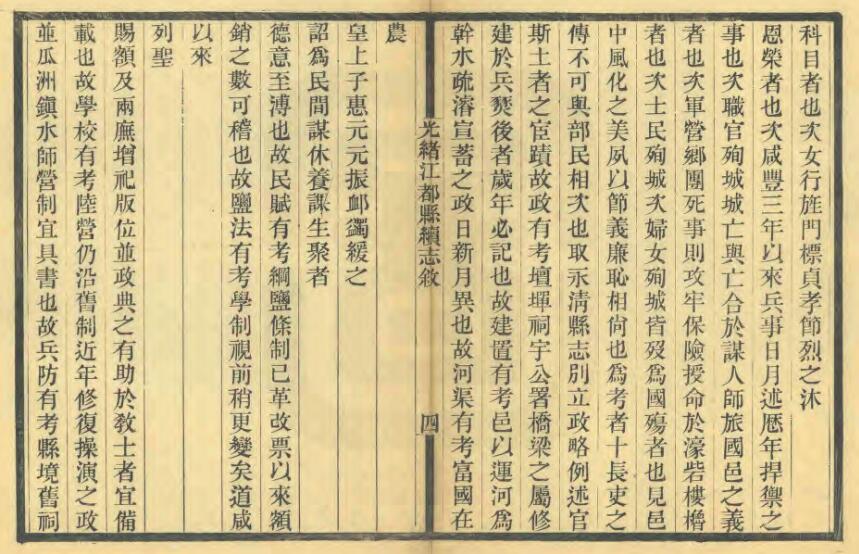 科目者也次女行旌門標貞孝節烈之沐
恩榮者也次咸豐三年以來兵事日月述厯年捍禦之
事也次職官殉城城亡與亡合於謀人師旅國邑之義
者也次軍營鄉團死事則攻牢保險授命於濠砦樓櫓
者也次士民殉城次婦女殉城皆歿爲國殤者也見邑
中風化之美夙以節義廉恥相尙也爲考者十長吏之
傳不可與部民相次也取永淸縣志別立政略例述官
斯土者之宦蹟故政有考壇墠祠宇公署橋梁之屬修
建於兵燹後者歲年必記也故建置有考邑以運河爲
幹水疏濬宣蓄之政日新月異也故河渠有考富國在
光緖江都縣續志敘
四
農
皇上子惠元元振卹蠲緩之
詔爲民間謀休養課生聚者
德意至溥也故民賦有考綱鹽條制已革改票以來額
銷之數可稽也故鹽法有考學制視前稍更變矣道咸
以來
列聖
賜額及兩廡增祀版位並政典之有助於敎士者宜備
載也故學校有考陸營仍沿舊制近年修復操演之政
並瓜洲鎭水師營制宜具書也故兵防有考縣境舊祠